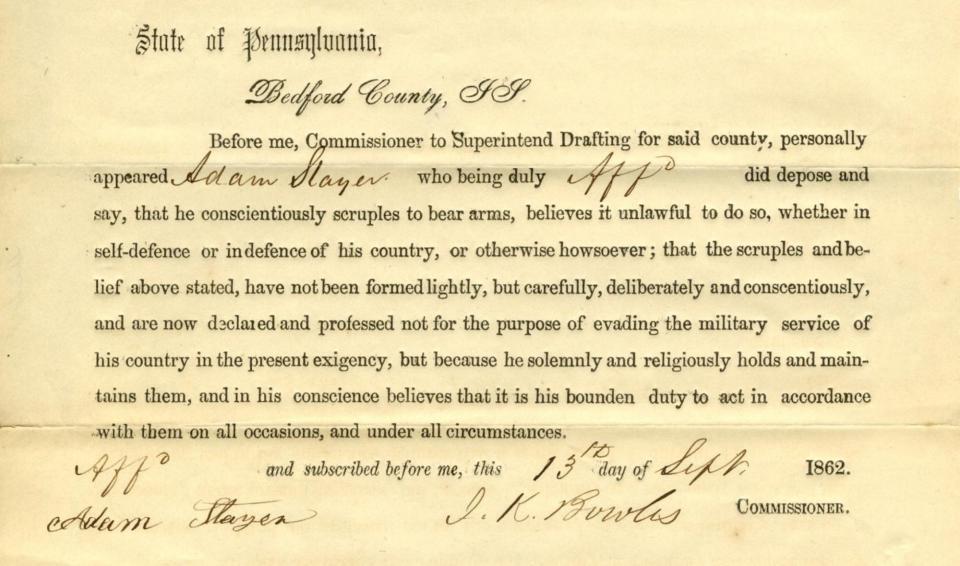 State of Pennsylvania,
Bedford County, SS.
Before me, Commissioner to Superintend Drafting for said county, personally
appeared Adam Stayer who being duly Aff^d did depose and
say, that he conscientiously scruples to bear arms, believes it unlawful to do so, whether in
self-defence or in defence of his country, or otherwise howsoever; that the scruples and be-
lief above stated, have not been formed lightly, but carefully, deliberately and conscentiously,
and are now declared and professed not for the purpose of evading the military service of
his country in the present exigency, but because he solemnly and religiously holds and main-
tains them, and in his conscience believes that it is his bounden duty to act in accordance
with them on all occasions, and under all circumstances.
Aff^d and subscribed before me, this 13th day of Sept. 1862.
Adam Stayer J. K. Bowles COMMISSIONER.